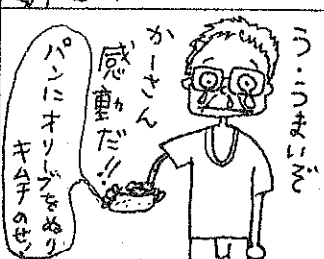 う・うまいぞ
かーさん
感動だ!!
パンにオリーブをぬり
キムチのせ!